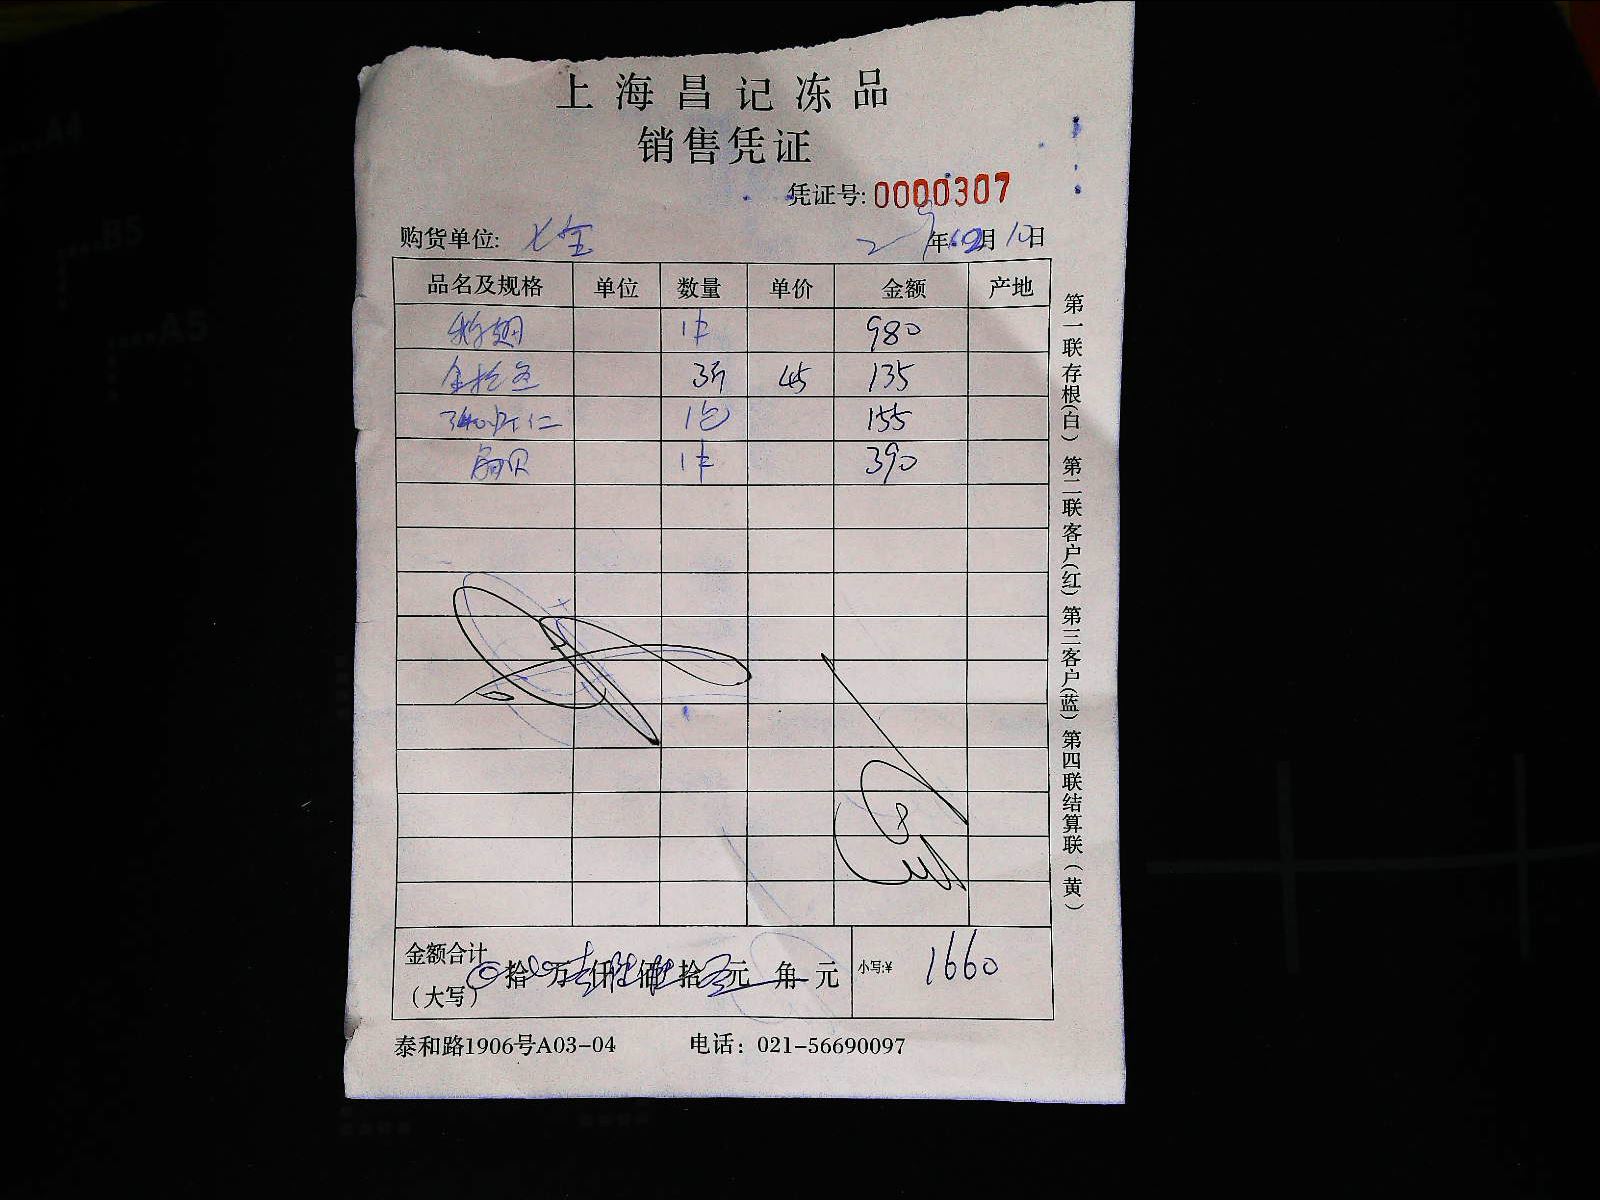 上海昌记冻品
销售凭证
凭证号: 0000307
购货单位: 七宝 年 月 10日
品名及规格 单位 数量 单价 金额 产地
1件 980
金枪鱼 3斤 45 135
虾仁 1包 155
扇贝 1件 390
金额合计
(大写) 拾 万 仟 佰 拾 元 角 元 小写:¥ 1660
泰和路1906号A03-04 电话: 021-56690097
第一联存根(白) 第二联客户(红) 第三客户(蓝) 第四联结算联(黄)
A4
B5
A5